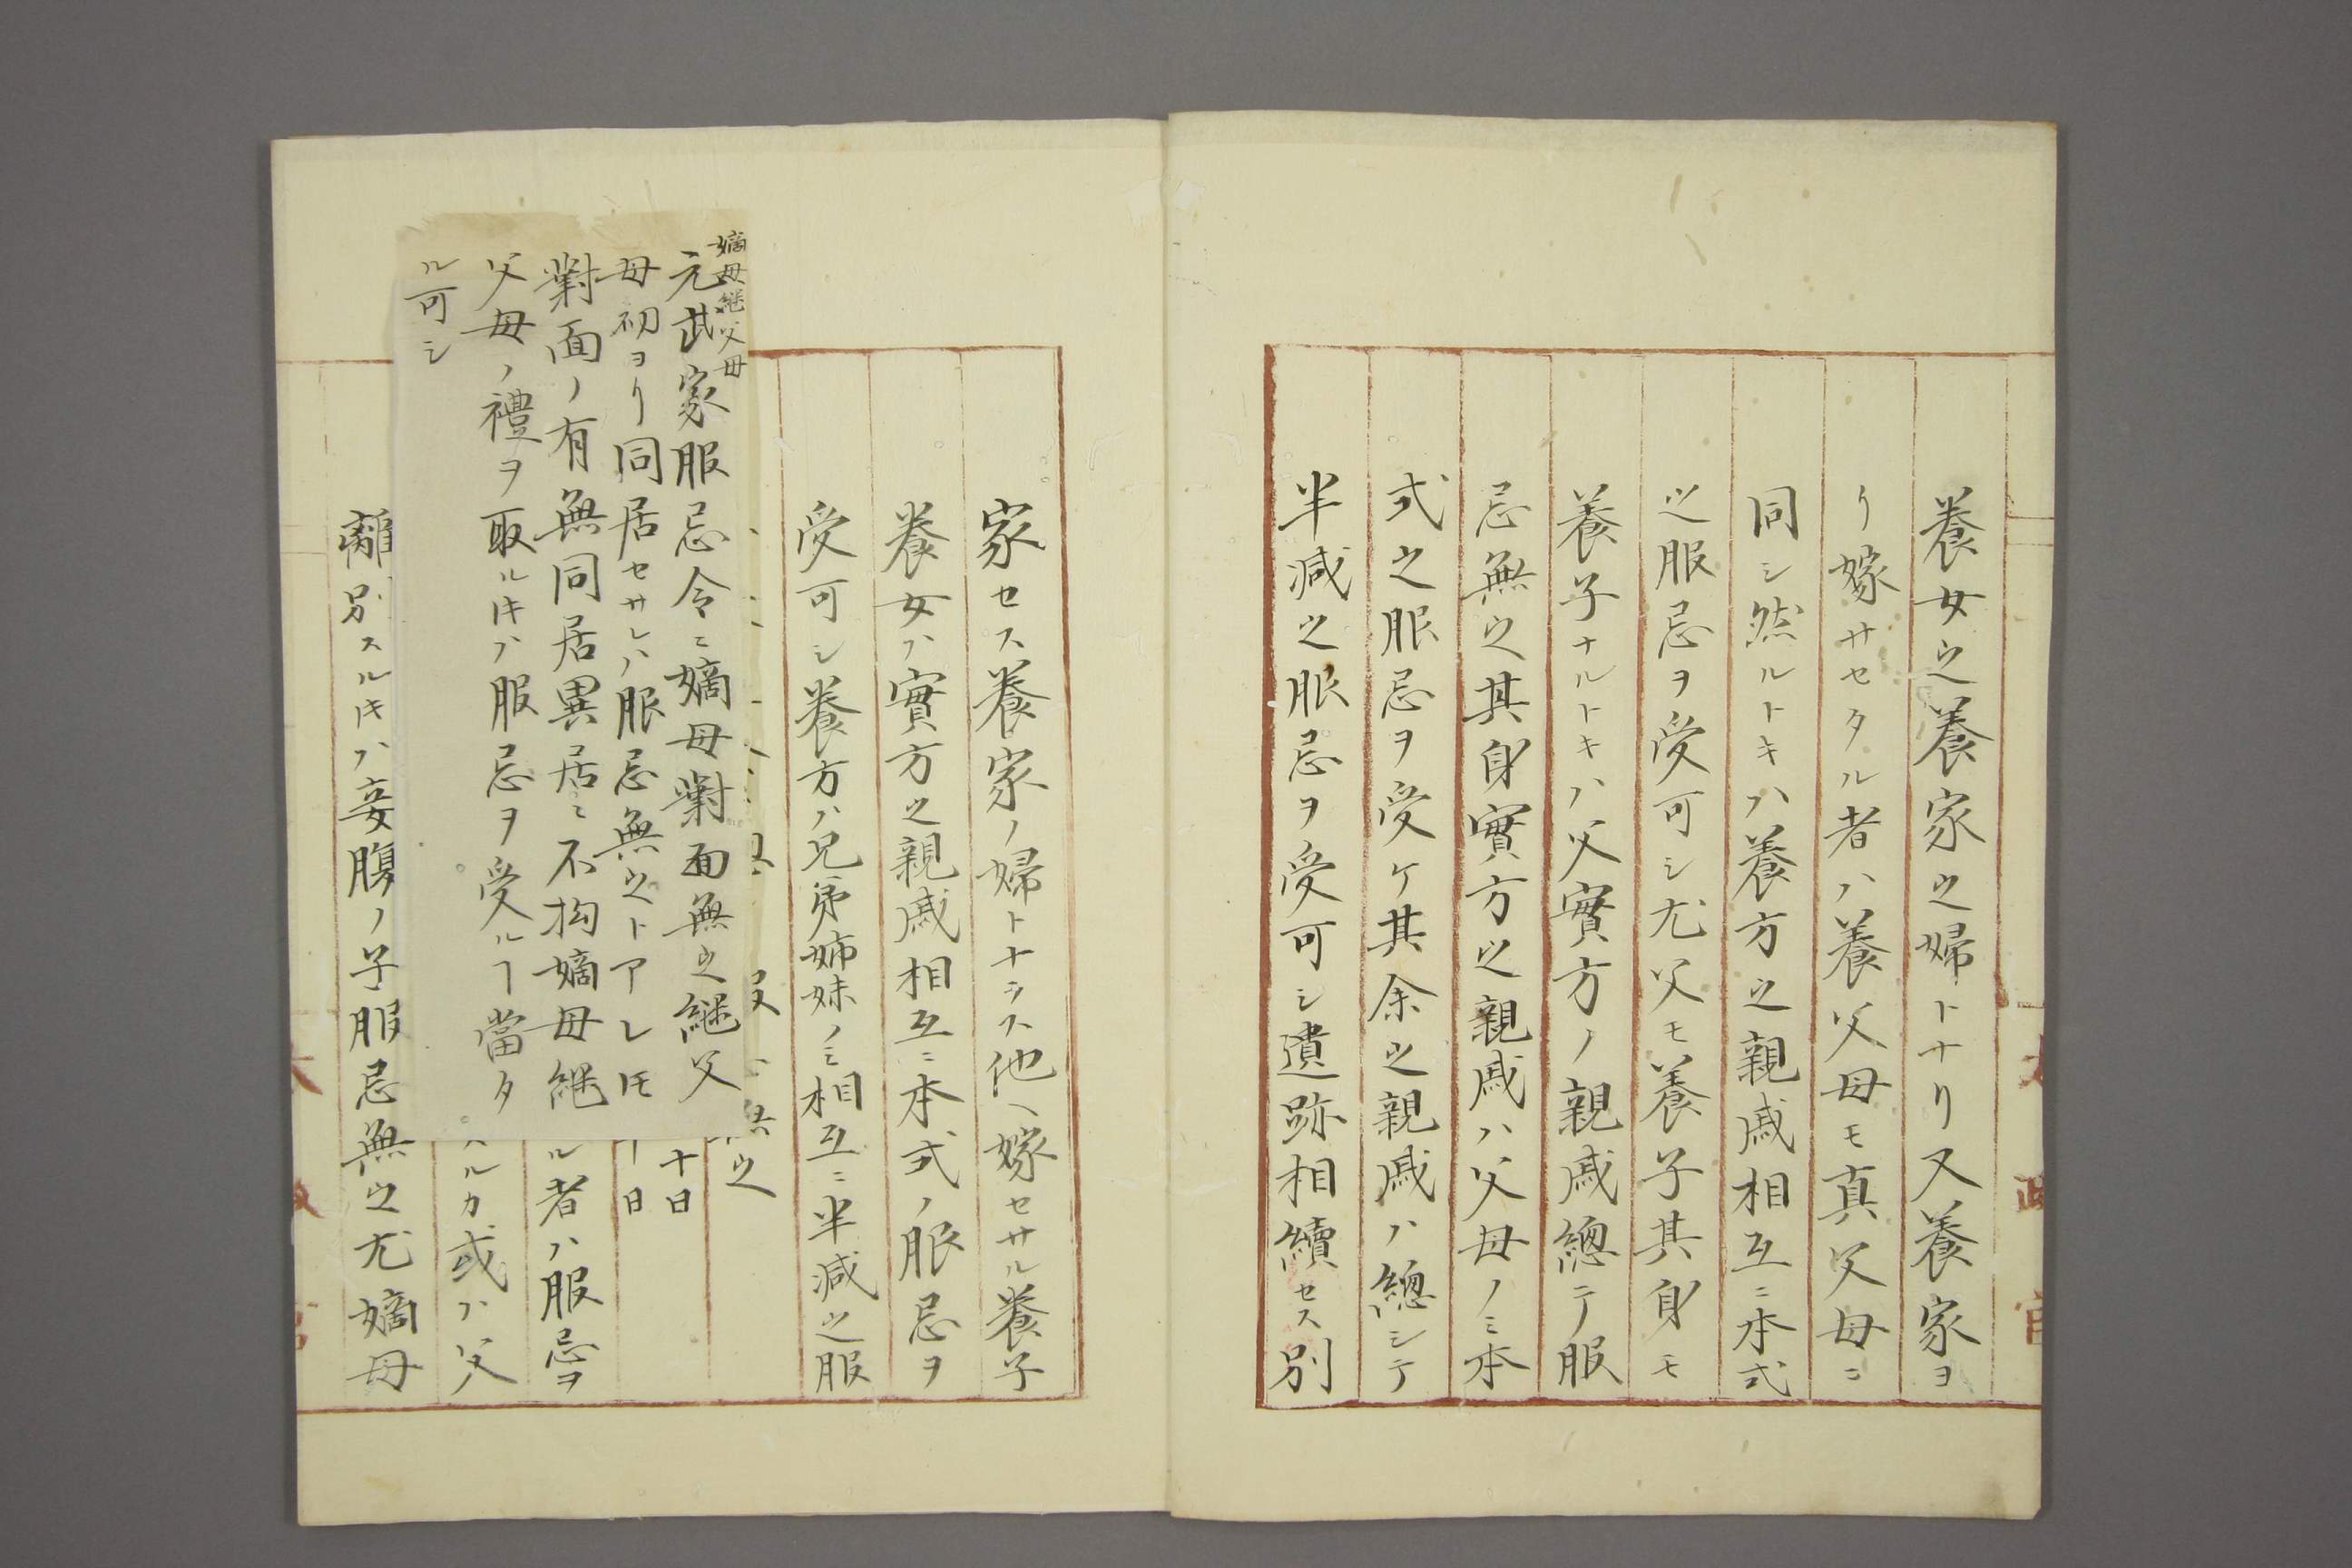 養女之養家之婦トナリ又養家ヨ
リ嫁サセタル者ハ養父母モ真父母ニ
同シ然ルトキハ養方之親戚相互ニ本式
之服忌ヲ受可シ尤父モ養子其身モ
養子ナルトキハ父實方ノ親戚總テ服
忌無之其身實方之親戚ハ父母ノミ本
式之服忌ヲ受ケ其余之親戚ハ總シテ
半減之服忌ヲ受可シ遺跡相續セス別
太政官
家セス養家ノ婦トナラス他ヘ嫁セサル養子
養女ハ實方之親戚相互ニ本式ノ服忌ヲ
受可シ養方ハ兄弟姉妹ノミ相互ニ半減之服
無之
嫡母継父母
元武家服忌令ニ嫡母對面無之継父
母初ヨリ同居セサレハ服忌無之トアレ𪜈
對面ノ有無同居異居ニ不拘嫡母継
父母ノ禮ヲ取ルキハ服忌ヲ受ルヿ當タ
ル可シ
十日
日
ル者ハ服忌ヲ
スルカ或ハ父
離別スルキハ妾腹ノ子服忌無之尤嫡母